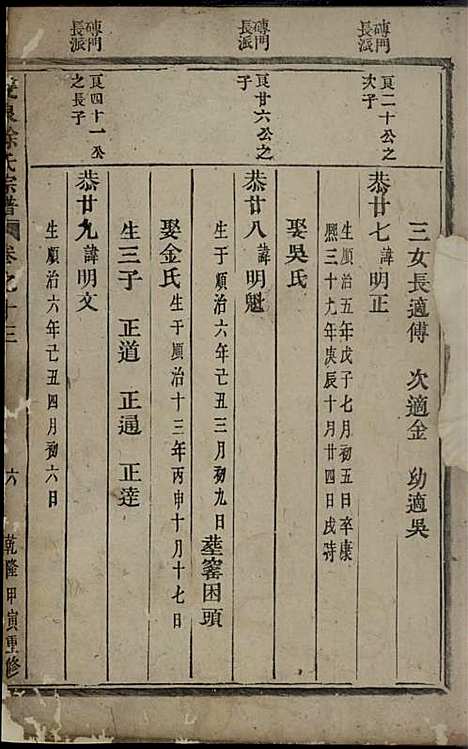 三女長適傅　次適金　幼適吳
磚門長派
良二十公之次子
恭廿七諱明正
生順治五年戊子七月初五日卒康
熙三十九年庚辰十月廿四日戌時
娶吳氏
磚門長派
良廿六公之子
恭廿八諱明魁
生于順治六年己丑三月初九日　塟窰困頭
娶金氏　生于順治十三年丙申十月十七日
生三子　正道　正通　正達
磚門長派
良四十一公之長子
恭廿九諱明文
生順治六年己丑四月初六日
泉徐氏宗譜　卷之十三　六　乾隆甲寅重修